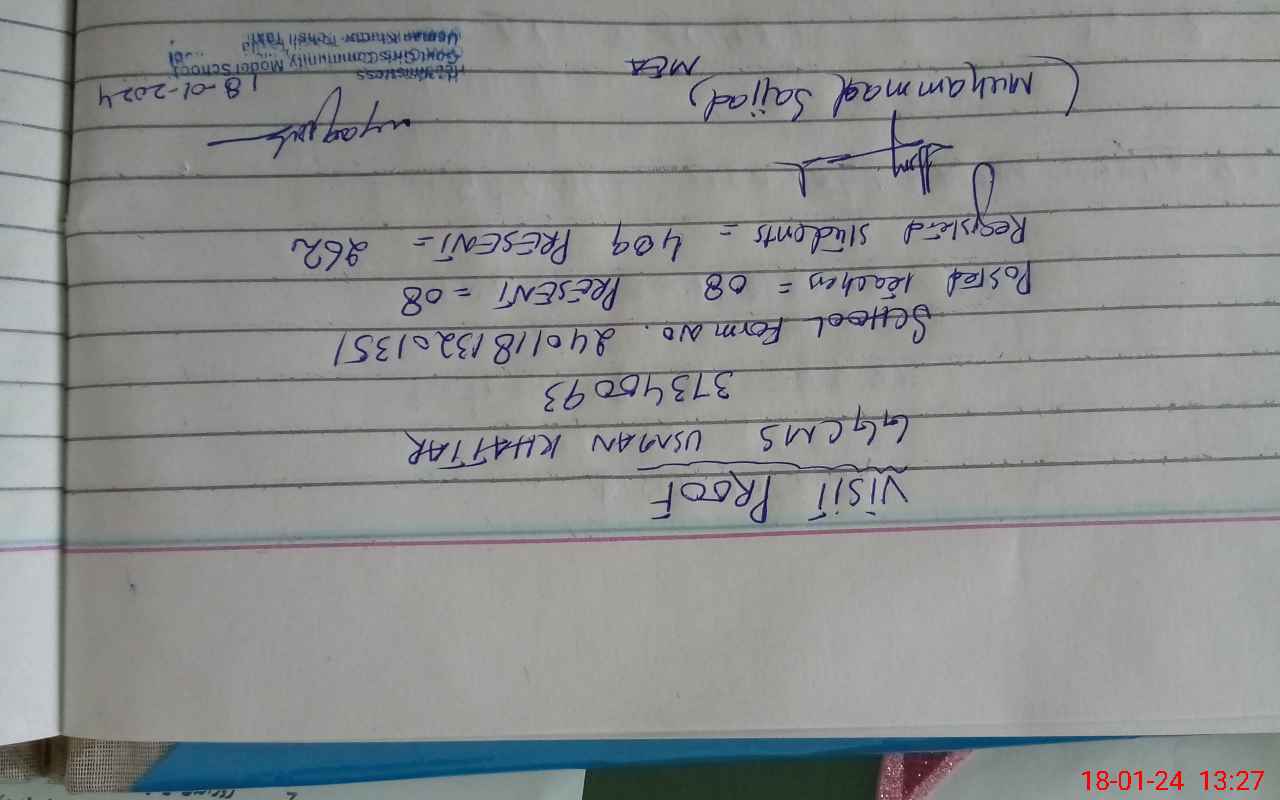 VISIT PROOF
GGCMS USMAN KHATTAR
37340093
SCHOOL Form No. 24011813201351
Posted teachers = 08 PRESENT = 08
Registerd students = 409 PRESENT = 262
(Muhammad Sajjad)
MEA
18-01-2024
Headmistress
Govt. Girls Community Model School
Usman Khattar Tehsil Taxila
18-01-24 13:27